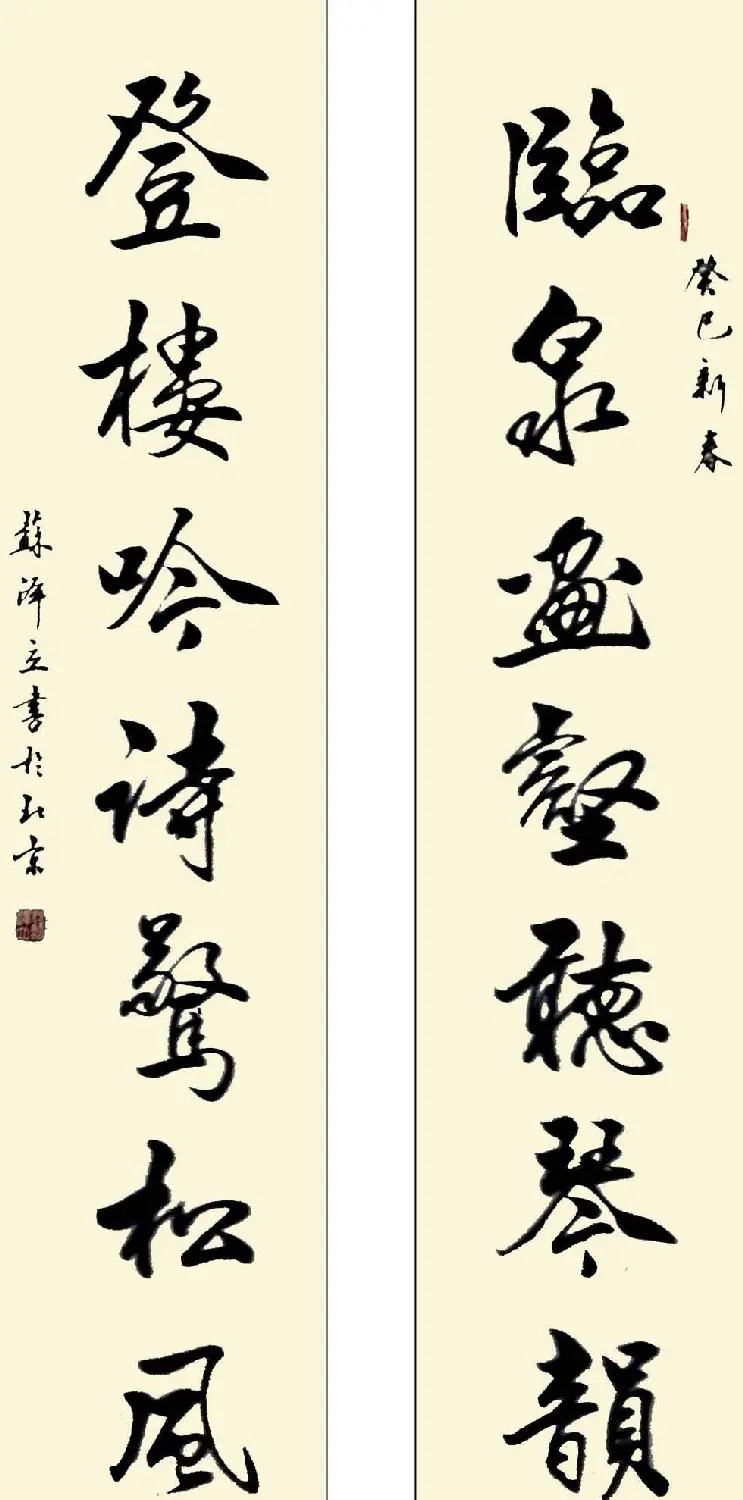 臨泉畫壑聽琴韻
癸巳新春
登樓吟詩驚松風
蘇澤立書於北京